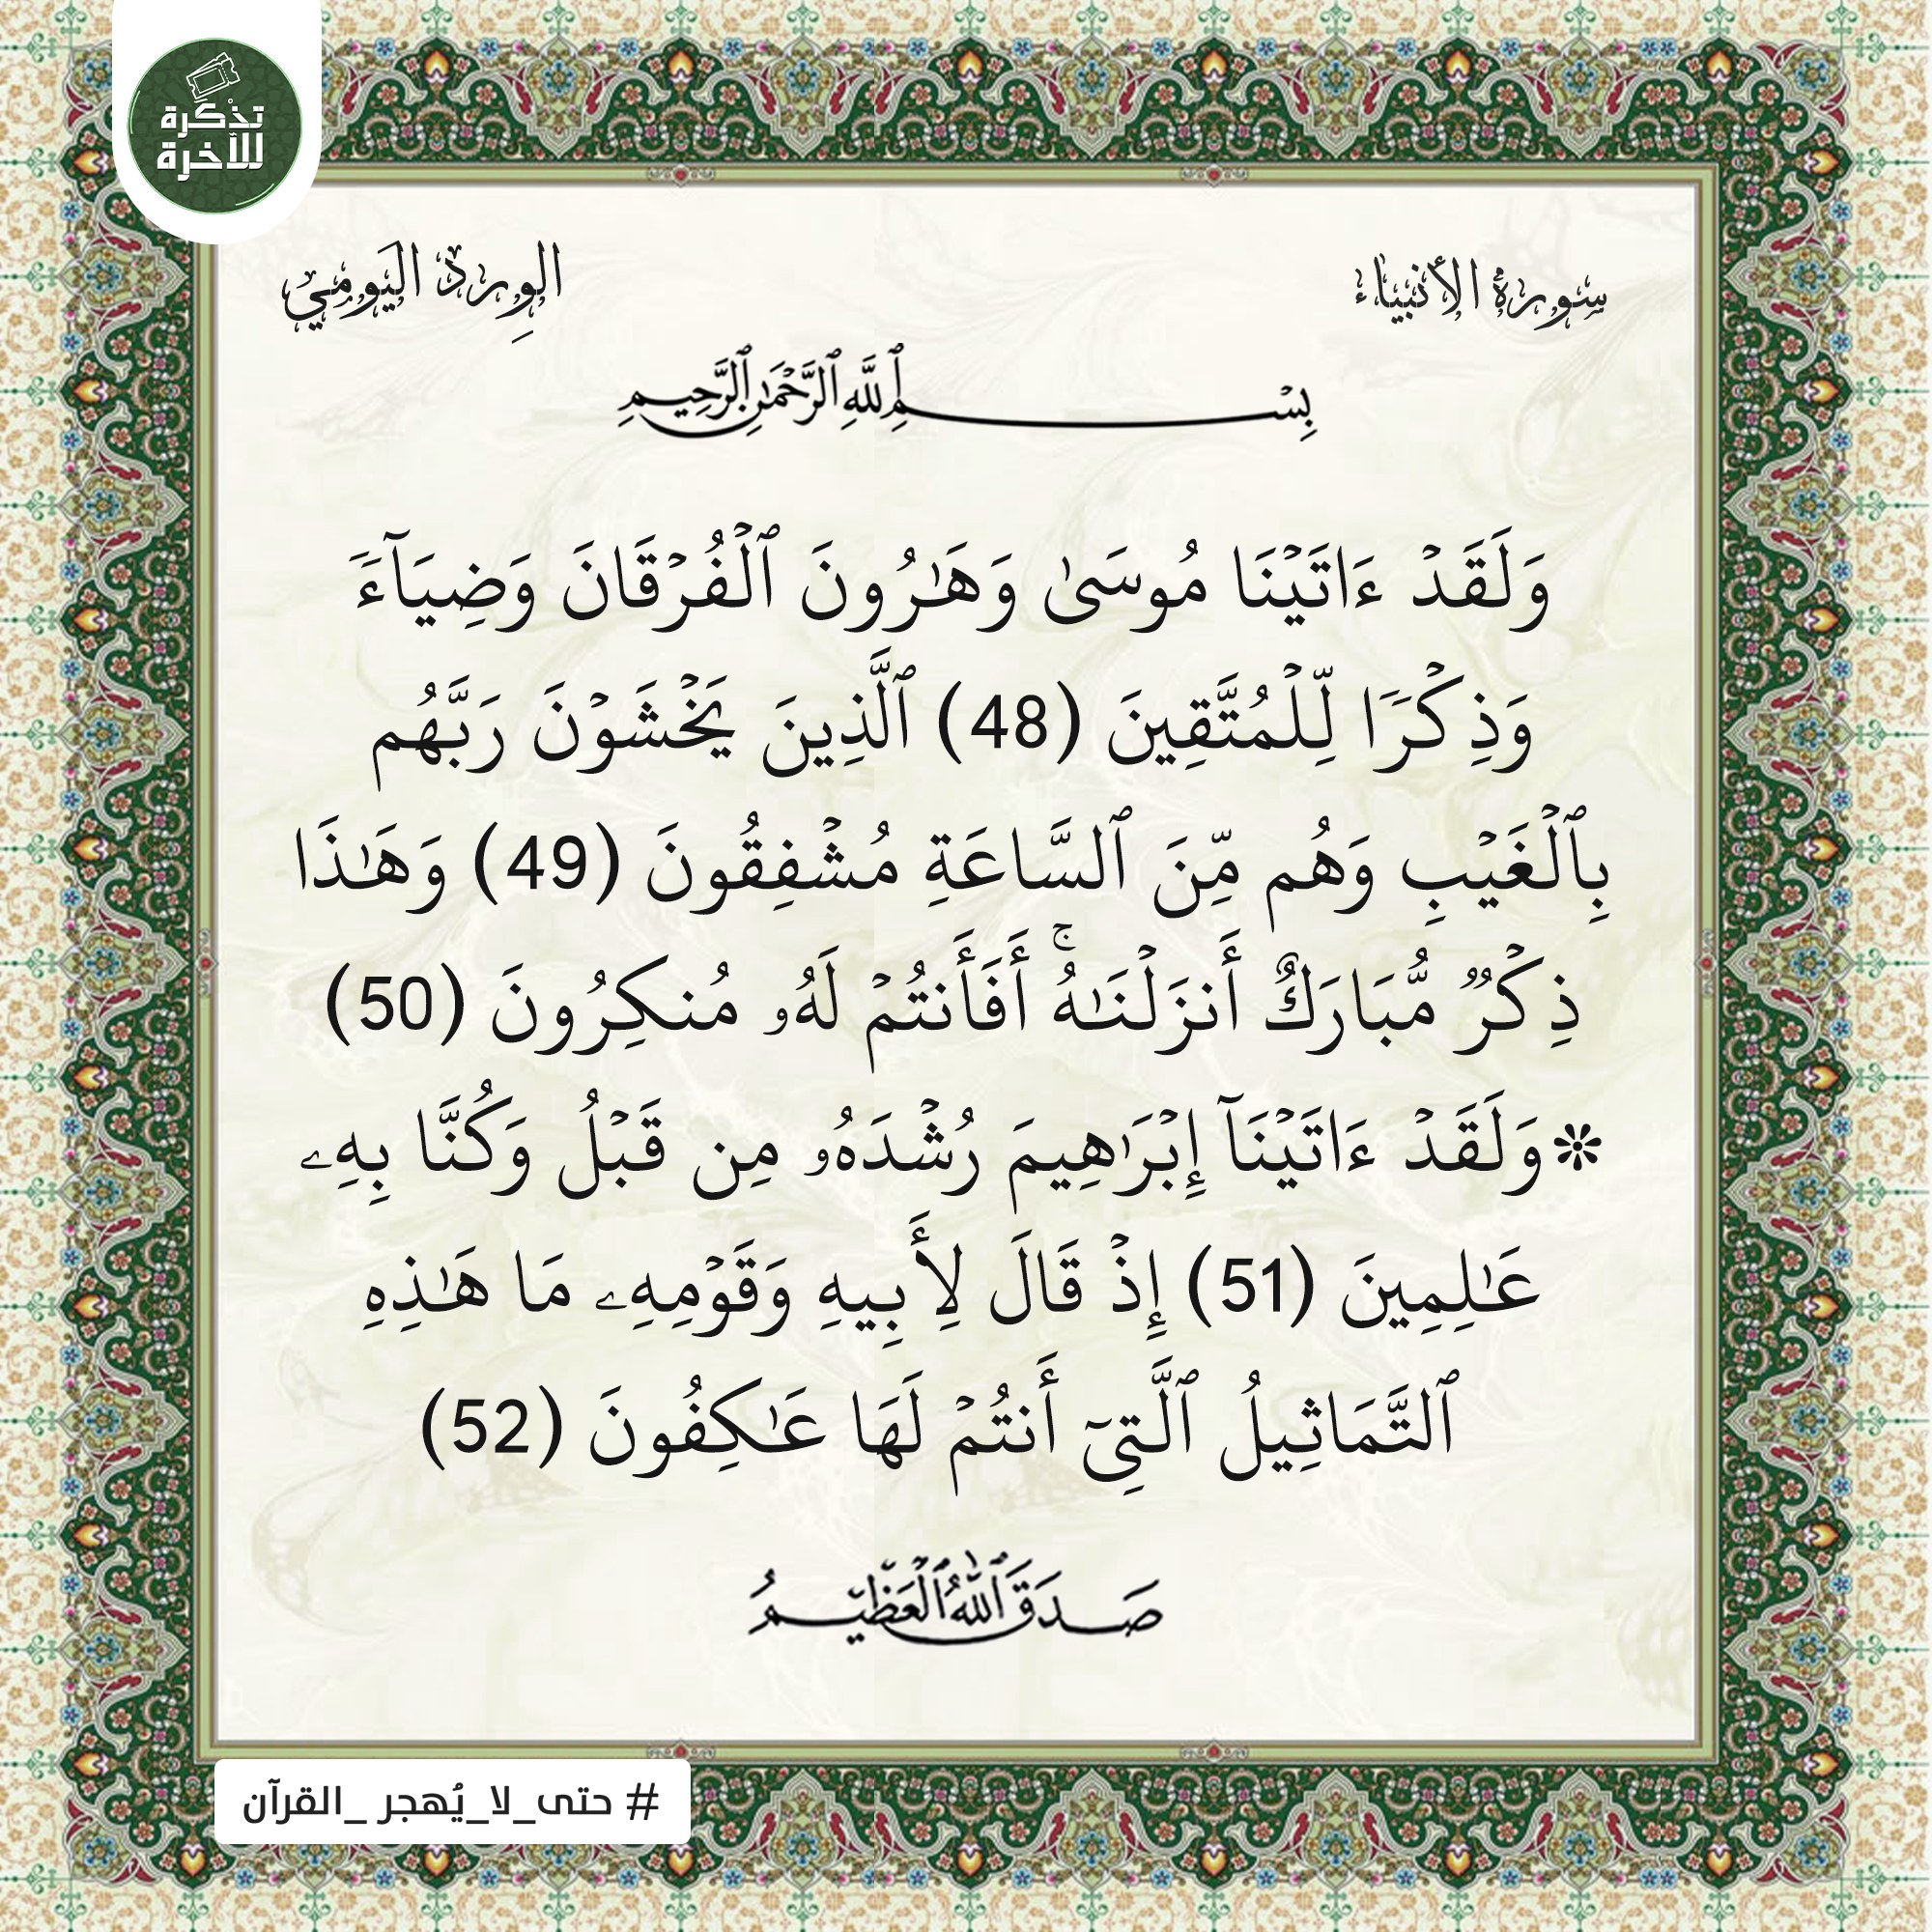 تذكرة
للآخرة
سورة الأنبياء
الوِرد اليَومي
بِسْمِ ٱللَّهِ ٱلرَّحْمَٰنِ ٱلرَّحِيمِ
وَلَقَدْ ءَاتَيْنَا مُوسَىٰ وَهَٰرُونَ ٱلْفُرْقَانَ وَضِيَآءً
وَذِكْرًا لِّلْمُتَّقِينَ (48) ٱلَّذِينَ يَخْشَوْنَ رَبَّهُم
بِٱلْغَيْبِ وَهُم مِّنَ ٱلسَّاعَةِ مُشْفِقُونَ (49) وَهَٰذَا
ذِكْرٌ مُّبَارَكٌ أَنزَلْنَٰهُۚ أَفَأَنتُمْ لَهُۥ مُنكِرُونَ (50)
۞وَلَقَدْ ءَاتَيْنَآ إِبْرَٰهِيمَ رُشْدَهُۥ مِن قَبْلُ وَكُنَّا بِهِۦ
عَٰلِمِينَ (51) إِذْ قَالَ لِأَبِيهِ وَقَوْمِهِۦ مَا هَٰذِهِ
ٱلتَّمَاثِيلُ ٱلَّتِىٓ أَنتُمْ لَهَا عَٰكِفُونَ (52)
صَدَقَ ٱللَّهُ ٱلْعَظِيمُ
# حتى_لا_يُهجر _القرآن